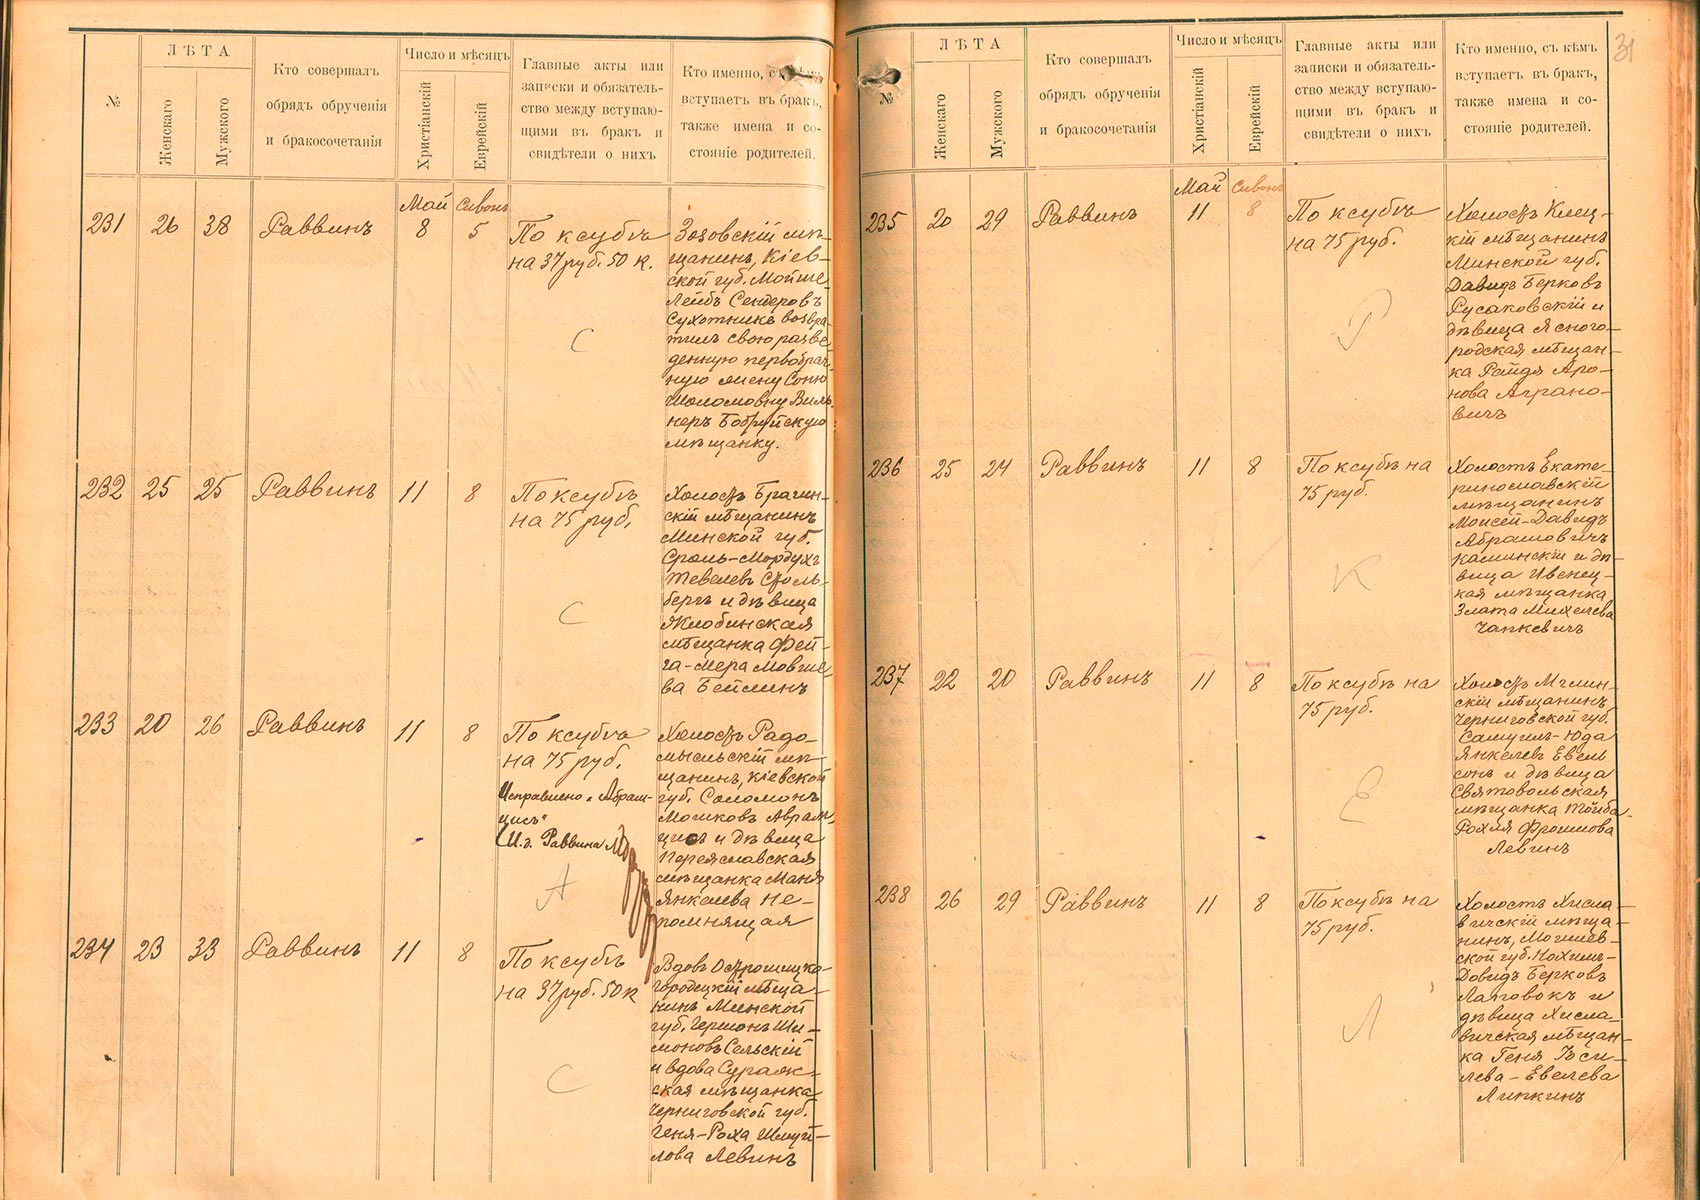 31
№
ЛѢТА
Женскаго
Мужского
Кто совершалъ
обрядъ обрученія
и бракосочетанія
Число и мѣсяцъ
Христіанскій
Еврейскій
Главные акты или
записки и обязатель-
ство между вступаю-
щими въ бракъ и
свидѣтели о нихъ
Кто именно, съ кѣмъ
вступаетъ въ бракъ,
также имена и со-
стояніе родителей.
Май Сивонъ
231 26 38 Раввинъ 8 5
По ксубѣ
на 37 руб. 50 к.
С
Зозовскій мѣ-
щанинъ, Кіев-
ской губ. Мойше
Лейбъ Сендеровъ
Сухотникъ возвра-
тилъ свою разве-
денную первобрач-
ную жену Соню
Шоломовну Виль-
неръ Бобруйскую
мѣщанку.
232 25 25 Раввинъ 11 8
По ксубѣ
на 75 руб.
С
Холостъ Брагин-
скій мѣщанинъ
Минской губ.
Сроль-Мордухъ
Тевелевъ Столь-
бергъ и дѣвица
Жлобинская
мѣщанка Фей-
га-Мера Мовше-
ва Бейлинъ
233 20 26 Раввинъ 11 8
По ксубѣ
на 75 руб.
Исправлено „Абрам-
цисъ“
И.д. Раввина
А
Холостъ Радо-
мысльскій мѣ-
щанинъ, Кіевской
губ. Соломонъ
Мошковъ Абрам-
цисъ и дѣвица
Переяславская
мѣщанка Маня
Янкелева Не-
помнящая
234 23 33 Раввинъ 11 8
По ксубѣ
на 37 руб. 50 к
С
Вдовъ Острошицко-
городецкій мѣща-
нинъ Минской
губ. Гершонъ Ши-
моновъ Сельскій
и вдова Суражс-
ская мѣщанка
Черниговской губ.
Геня-Роха Шмуй-
лова Левинъ
№
ЛѢТА
Женскаго
Мужского
Кто совершалъ
обрядъ обрученія
и бракосочетанія
Число и мѣсяцъ
Христіанскій
Еврейскій
Главные акты или
записки и обязатель-
ство между вступаю-
щими въ бракъ и
свидѣтели о нихъ
Кто именно, съ кѣмъ
вступаетъ въ бракъ,
также имена и со-
стояніе родителей.
Май Сивонъ
235 20 29 Раввинъ 11 8
По ксубѣ
на 75 руб.
Р
Холостъ Клец-
кій мѣщанинъ
Минской губ.
Давидъ Берковъ
Русаковскій и
дѣвица Ясного-
родская мѣщан-
ка Райдъ Аро-
нова Аграно-
вичъ
236 25 24 Раввинъ 11 8
По ксубѣ на
75 руб.
К
Холостъ Екате-
ринославскій
мѣщанинъ
Моисей-Давидъ
Абрамовичъ
Каминскій и дѣ-
вица Ивенец-
кая мѣщанка
Злата Михелева
Чапкевичъ
237 22 20 Раввинъ 11 8
По ксубѣ на
75 руб.
Е
Холостъ Мглин-
скій мѣщанинъ
Черниговской губ.
Самуилъ-Юда
Янкелевъ Евель
сонъ и дѣвица
Святовольская
мѣщанка Тойба-
Рохля Фроимова
Левинъ
238 26 29 Раввинъ 11 8
По ксубѣ на
75 руб.
Л
Холостъ Хисла-
вичскій мѣща-
нинъ, Могилев-
ской губ. Нохимъ-
Довидъ Берковъ
Лаповокъ и
дѣвица Хисла-
вичская мѣщан-
ка Геня Іоси-
лева-Евелева
Липкинъ